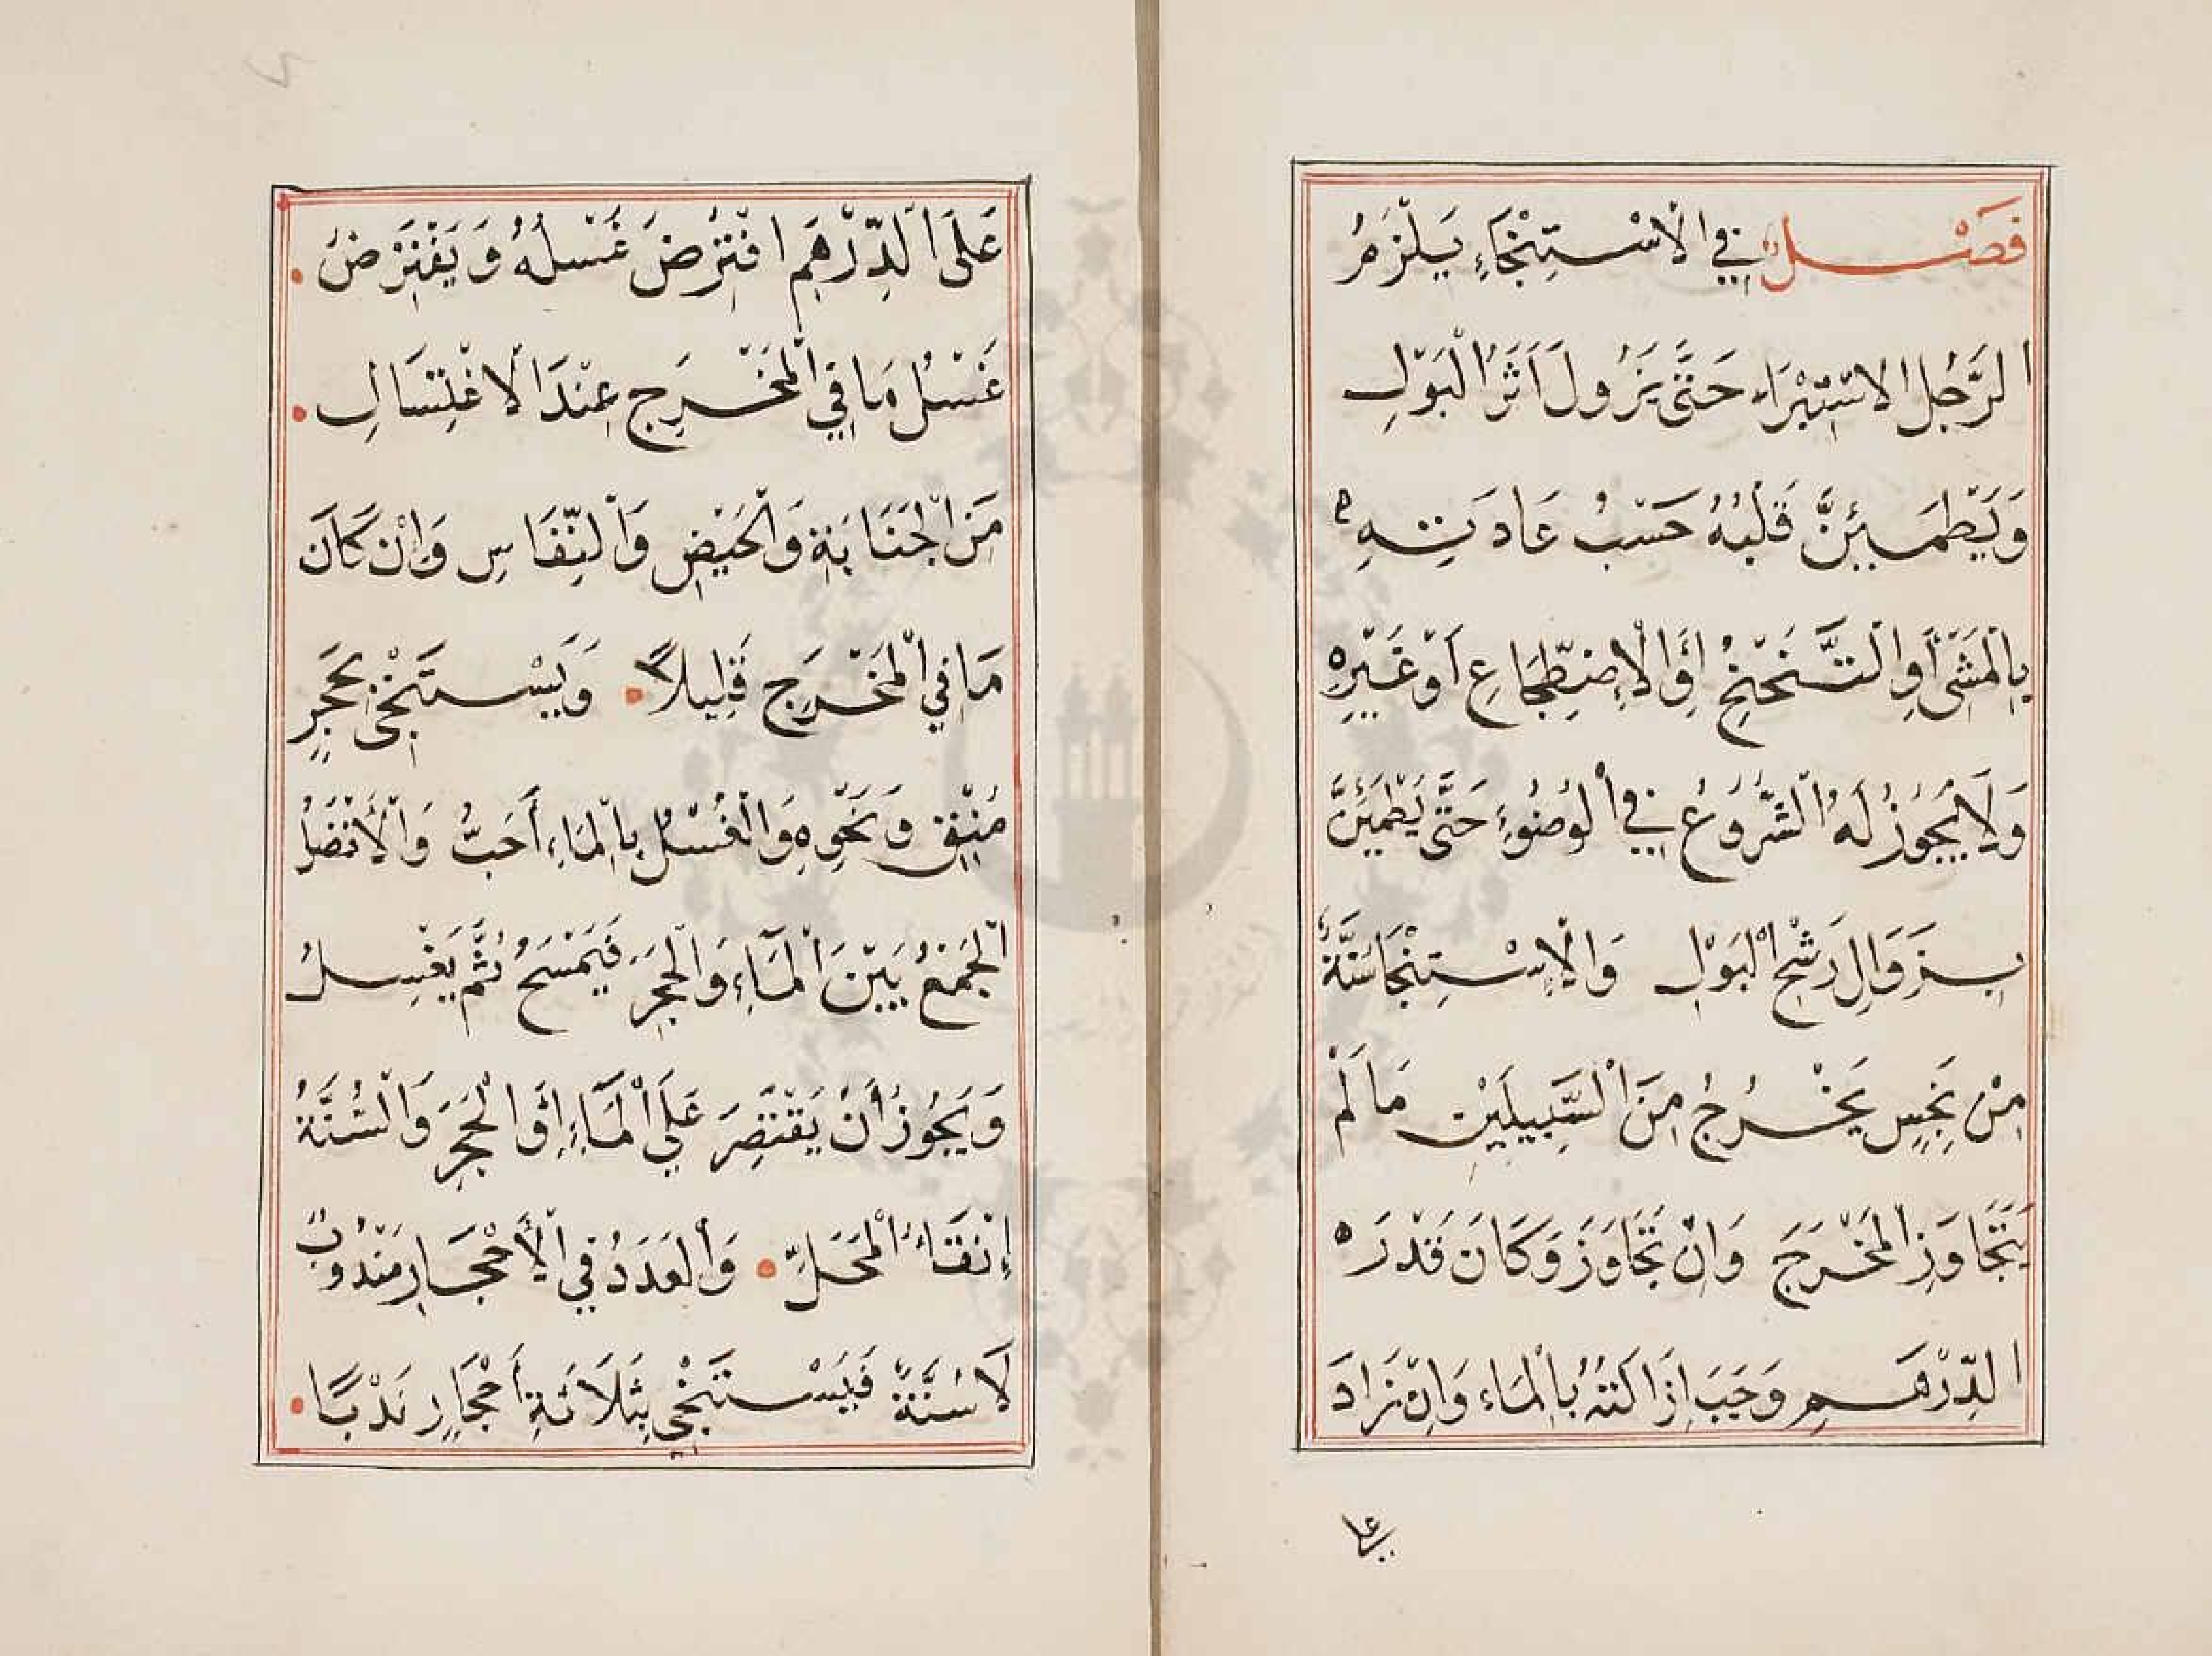 فَصْلٌ فِي الْاسْتِنْجَاءِ يَلْزَمُ
الرَّجُلَ الاسْتِبْرَاءُ حَتَّى يَزُولَ أَثَرُ الْبَوْلِ
وَيَطْمَئِنَّ قَلْبُهُ حَسْبُ عَادَتِهِ
بِالْمَشْيِ أَوِ التَّنَحْنُحِ أَوِ الْاِضْطِجَاعِ أَوْ غَيْرِهِ
وَلَا يَجُوزُ لَهُ الشُّرُوعُ فِي الْوُضُوءِ حَتَّى يَطْمَئِنَّ
بِزَوَالِ رَشْحِ الْبَوْلِ وَالْاِسْتِنْجَا سُنَّةٌ
مِنْ نَجِسٍ يَخْرُجُ مِنَ السَّبِيلَيْنِ مَا لَمْ
يَتَجَاوَزِ الْمَخْرَجَ وَاِنْ تَجَاوَزَ وَكَانَ قَدْرَ
الدِّرْهَمِ وَجَبَ اِزَالَتُهُ بِالْمَاءِ وَاِنْ زَادَ
عَلَى الدِّرْهَمِ افْتُرِضَ غَسْلُهُ وَيَفْتَرِضُ
غَسْلُ مَا فِي الْمَخْرَجِ عِنْدَ الْاغْتِسَالِ
مِنَ الْجَنَابَةِ وَالْحَيْضِ وَالنِّفَاسِ وَاِنْ كَانَ
مَا فِي الْمَخْرَجِ قَلِيلاً وَيَسْتَنْجِي بِحَجَرٍ
مُنْقٍ وَنَحْوِهِ وَالْغُسْلُ بِالْمَاءِ أَحَبُّ وَالْأَفْضَلُ
الْجَمْعُ بَيْنَ الْمَاءِ وَالْحَجَرِ فَيَمْسَحُ ثُمَّ يَغْسِلُ
وَيَجُوزُ أَنْ يَقْتَصِرَ عَلَى الْمَاءِ أَوِ الْحَجَرِ وَالسُّنَّةُ
إِنْقَاءُ الْمَحَلِّ وَالْعَدَدُ فِي الْأَحْجَارِ مَنْدُوبٌ
لَا سُنَّةٌ فَيَسْتَنْجِي بِثَلَاثَةِ أَحْجَارٍ نَدْبًا